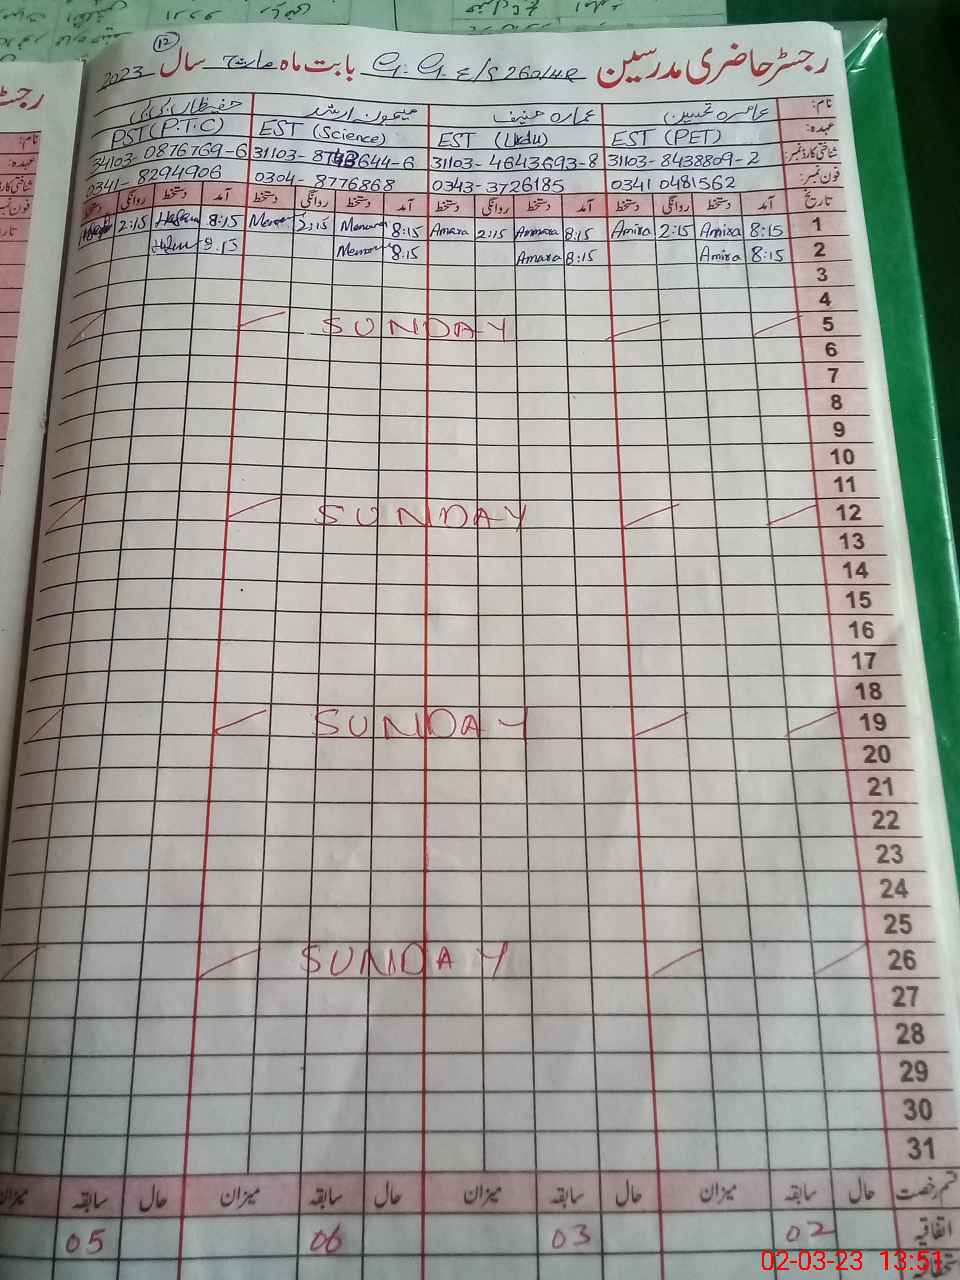 رجسٹر حاضری مدرسین G. G. E/S 260/4R بابت ماہ مارچ سال 2023
12
نام: عامرہ تحسین عمارہ حنیف میمونہ ارشد حفیظاں بی بی
عہدہ: EST (PET) EST (Urdu) EST (Science) PST (P.T.C)
شناختی کارڈ نمبر: 31103-8438809-2 31103-4643693-8 34103-0876769-6
فون نمبر: 0341 0481562 0343-3726185 0304-8776868 0341-8294906
تاریخ آمد دستخط روانگی دستخط آمد دستخط روانگی دستخط آمد دستخط روانگی دستخط آمد دستخط روانگی دستخط
1 8:15 Amira 2:15 Amira 8:15 Ammara 2:15 Amara 8:15 2:15 8:15 2:15
2 8:15 Amira 8:15 Amara 8:15 8:15
3
4
5 SUNDAY
6
7
8
9
10
11
12 SUNDAY
13
14
15
16
17
18
19 SUNDAY
20
21
22
23
24
25
26 SUNDAY
27
28
29
30
31
قسم رخصت حال سابقہ میزان حال سابقہ میزان حال سابقہ میزان حال سابقہ میزان
اتفاقیہ 02 03 06 05
02-03-23 13:51